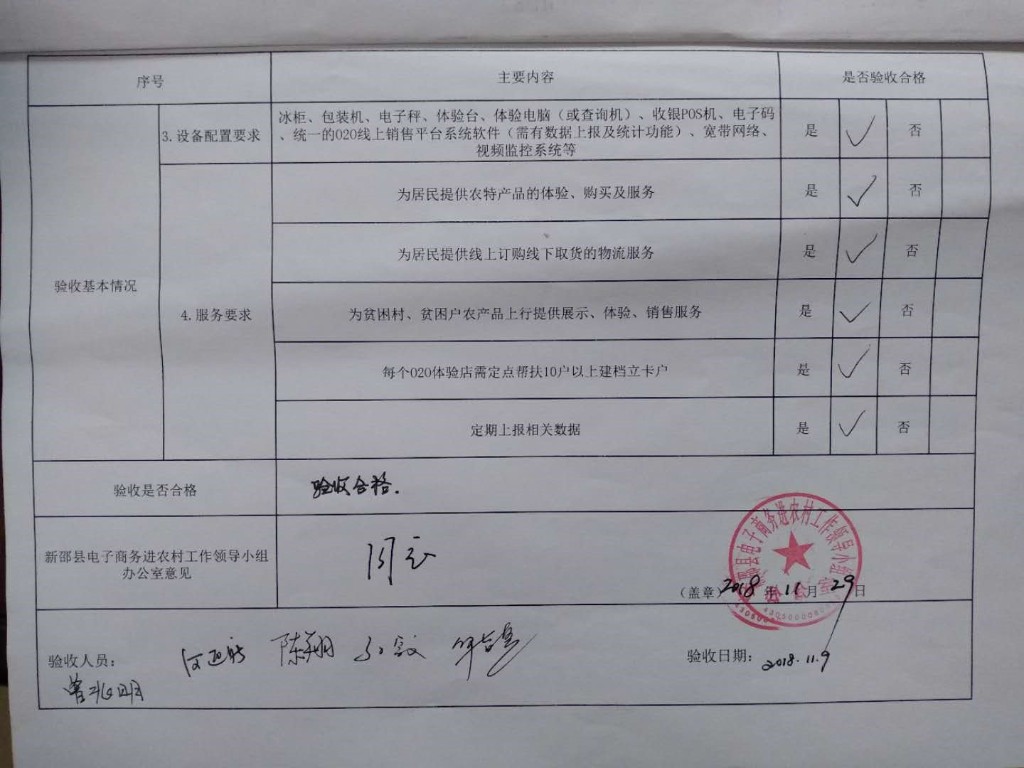 序号 主要内容 是否验收合格
验收基本情况
3.设备配置要求
冰柜、包装机、电子秤、体验台、体验电脑（或查询机）、收银POS机、电子码
、统一的O2O线上销售平台系统软件（需有数据上报及统计功能）、宽带网络、
视频监控系统等
是 ✓ 否
4.服务要求
为居民提供农特产品的体验、购买及服务 是 ✓ 否
为居民提供线上订购线下取货的物流服务 是 ✓ 否
为贫困村、贫困户农产品上行提供展示、体验、销售服务 是 ✓ 否
每个O2O体验店需定点帮扶10户以上建档立卡户 是 ✓ 否
定期上报相关数据 是 ✓ 否
验收是否合格 验收合格.
新邵县电子商务进农村工作领导小组
办公室意见
同意
新邵县电子商务进农村工作领导小组
办公室
（盖章）2018年11月29日
验收人员： 陈翔
验收日期：2018.11.9